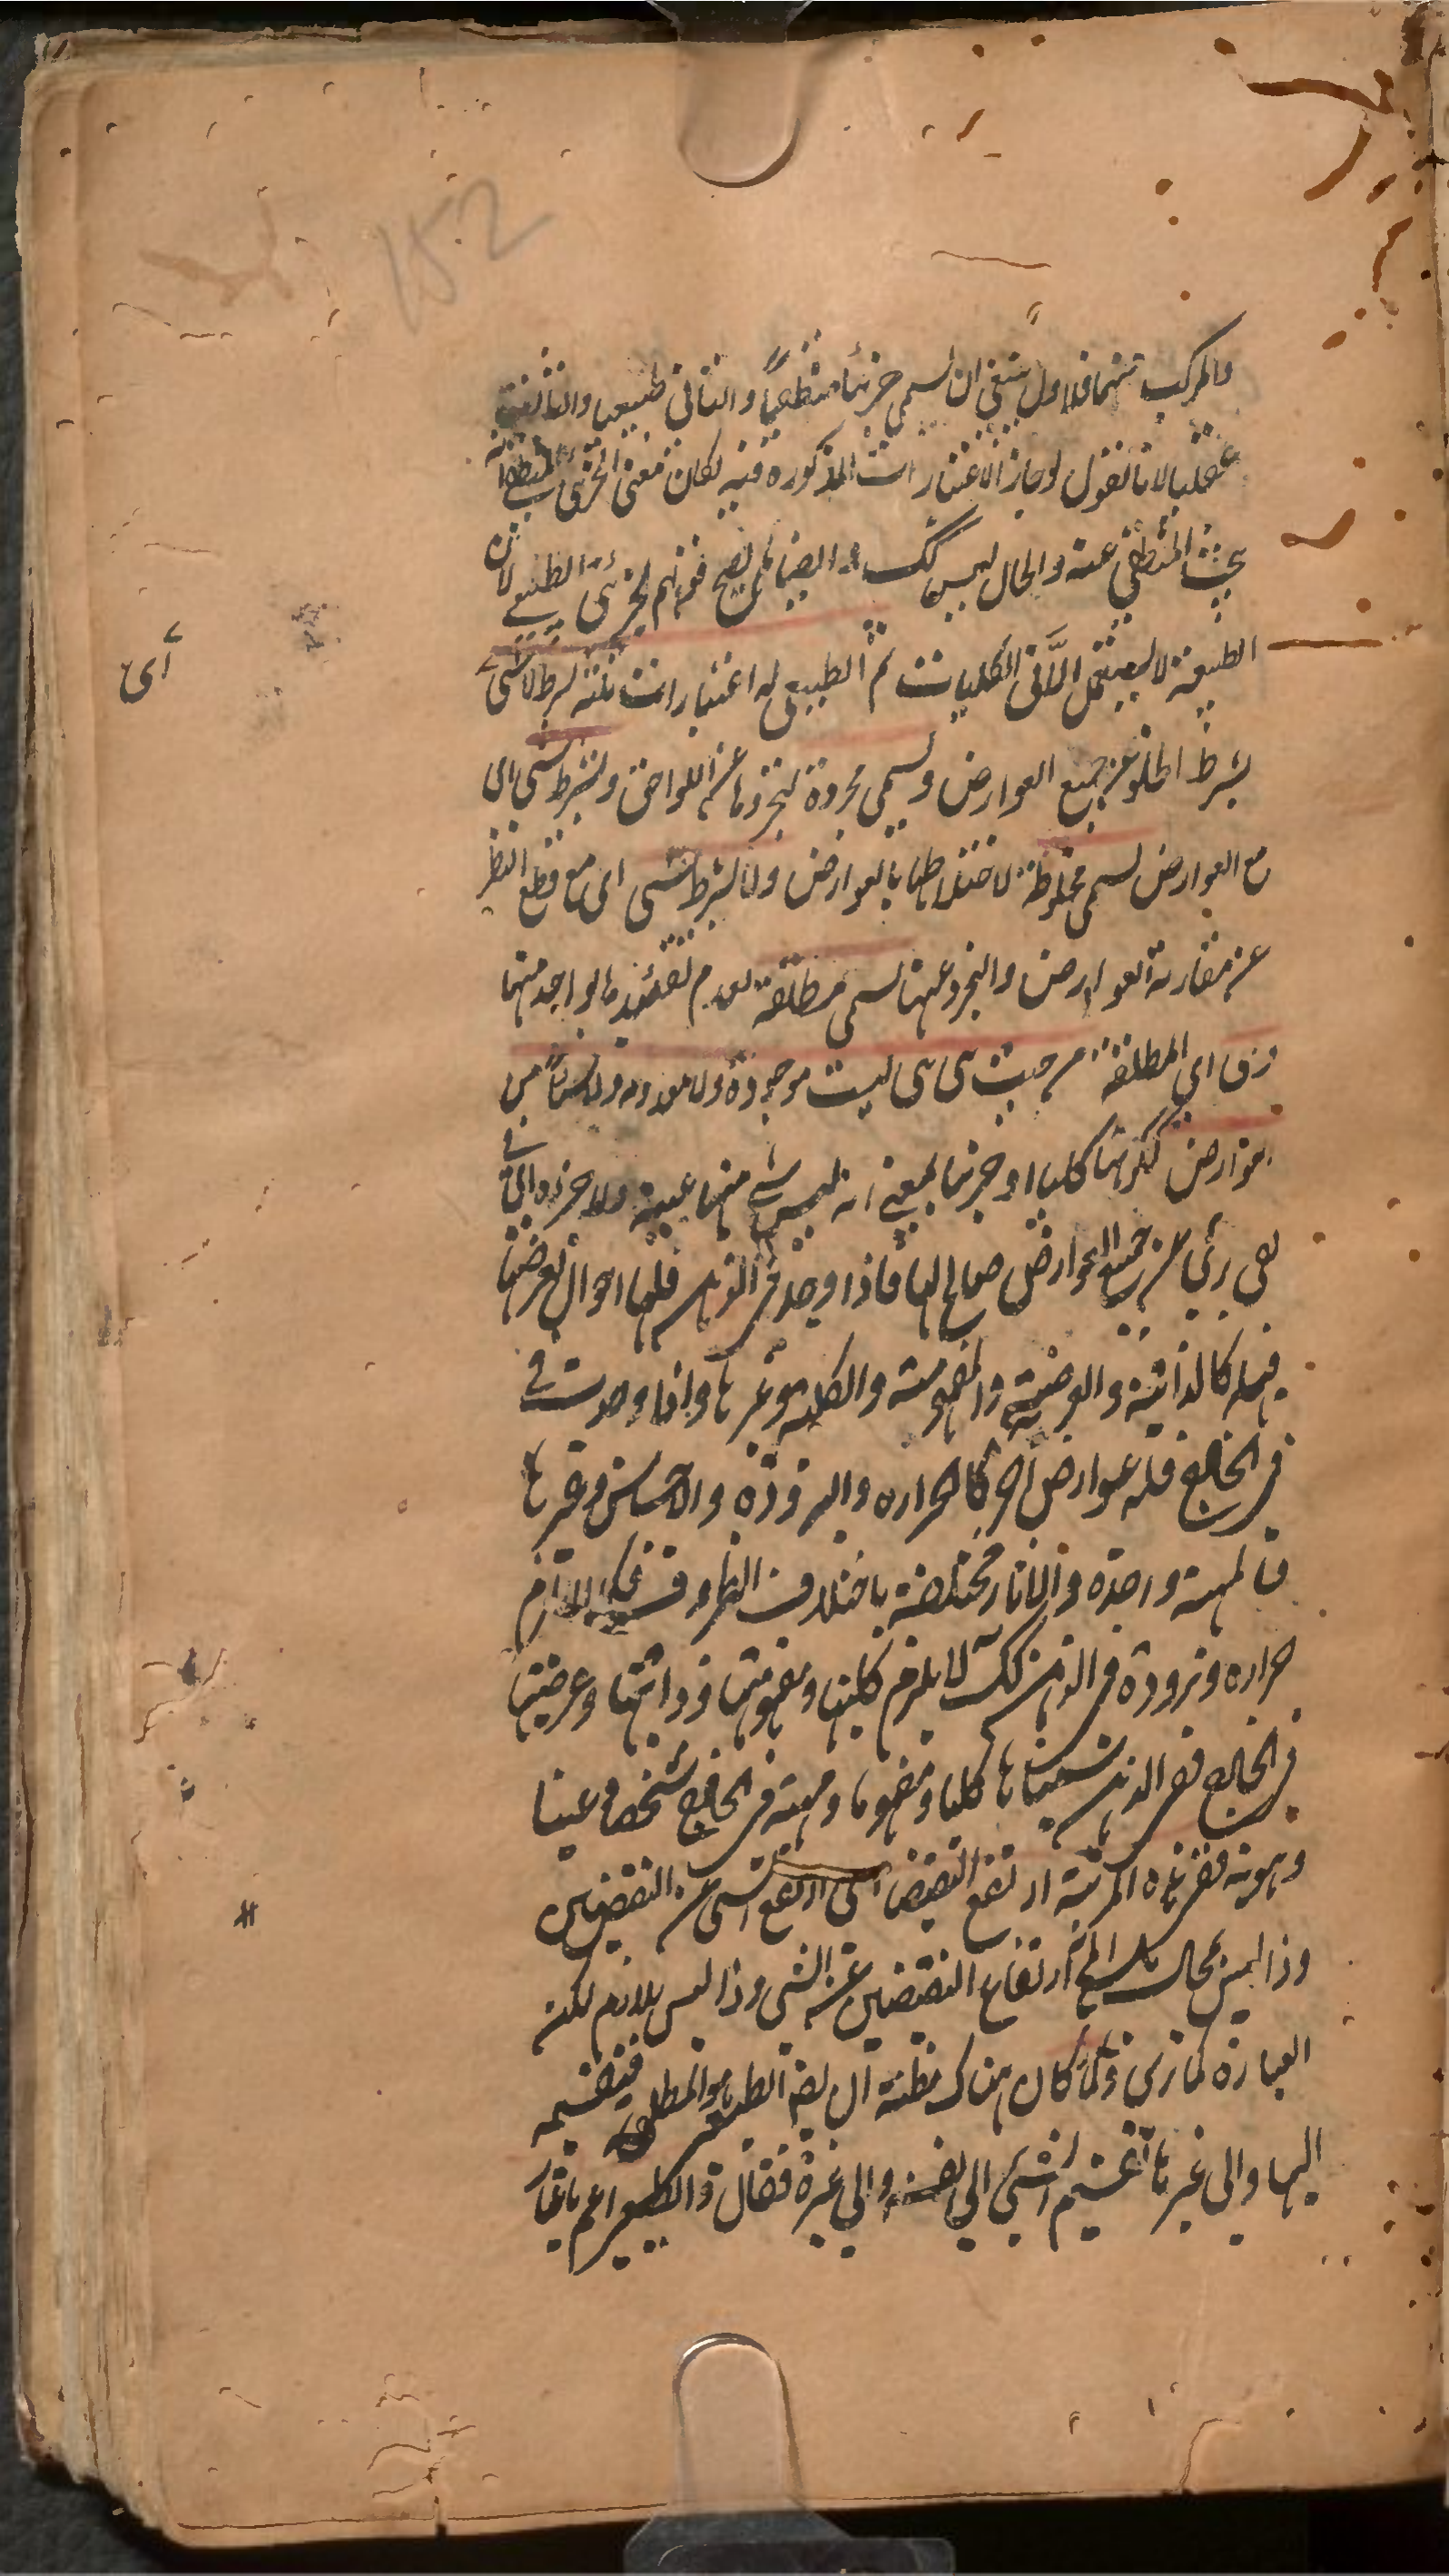 152
والمركب منهما فالاول ينبغي ان يسمى جزئيا منطقيا والثاني طبيعيا والثالث
عقليا لانا نقول لو جاز الاعتبارات المذكورة فيه لكان معنى الجزئي المنطقي انه
يبحث المنطقي عنه والحال ليس كك وايضا لم يصح قولهم الجزئي الطبيعي لان
الطبيعة لا يستعمل الا في الكليات ثم الطبيعي له اعتبارات ثلثة بشرط لا شئ
أى
بشرط الخلو عن جميع العوارض ويسمى مجردة لتجردها عن اللواحق وبشرط شئ اى
مع العوارض يسمى مخلوطة لاختلاطها بالعوارض ولا بشرط شئ اى مع قطع النظر
عن مقارنة العوارض والتجرد عنها يسمى مطلقة لعدم تقييدها بواحد منهما
اى المطلقة من حيث هى هى ليست موجودة ولا معدومة ولا شيئا من
العوارض ككونها كليا او جزئيا بمعنى انه ليس شئ منها عينه ولا جزءه
عن جميع العوارض صالح لها فاذا وجد فى الذهن فلها احوال تعرضها
فيه كالذاتية والعرضية والمفهومية والكلية وغيرها واذا وجدت فى
فى الخارج فله عوارض اخر كالحرارة والبرودة والاحساس وغيرها
فالمهية واحدة والاثار مختلفة باختلاف الظروف فكما لا يلزم
حرارة وبرودة فى الذهن كك لا يلزم كليتها ومفهوميتها وذاتيتها وعرضيتها
فى الخارج ففى الذهن سميناها كليا ومفهوما ومهية وفى الخارج شخصا وعينا
وهوية ففى هذه المرتبة ارتفع النقيضان اى ارتفع الشئ عن النقيضين
وذا ليس بمحال بل المحال ارتفاع النقيضين عن الشئ وذا ليس بلازم لكن
العبارة كما ترى ولما كان هناك مظنة ان يقال الطبيعى هو المطلق فتقسيمه
اليها والى غيرها تقسيم الشئ الى نفسه والى غيره فقال والطبيعى اعم باعتبار